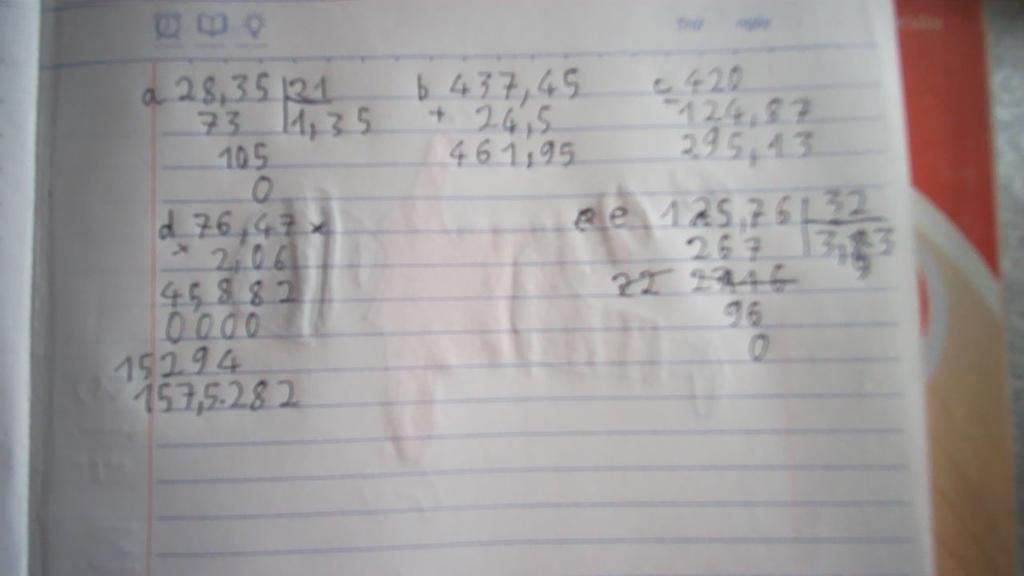 Thứ ngày
a 28,35 21 b 437,45 c 420
73 1,35 + 24,5 - 124,87
105 461,95 295,13
0
d 76,47 x e 125,76 32
x 2,06 267 3,93
45882
0000 96
15294 0
157,5282